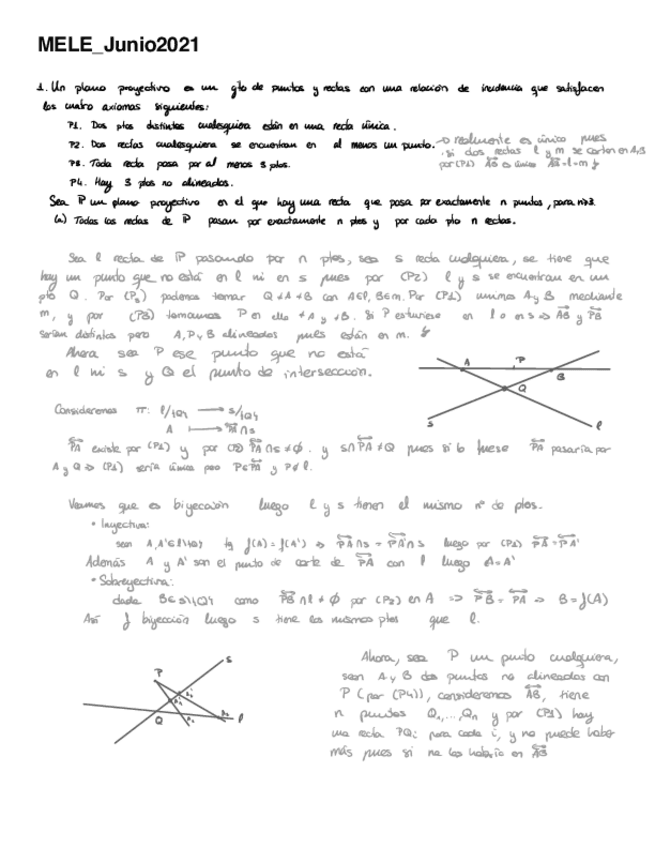 MELE_Junio2021
1. Un plano proyectivo es un cjto de puntos y rectas con una relación de incidencia que satisfacen
los cuatro axiomas siguientes:
P1. Dos ptos distintos cualesquiera están en una recta única.
P2. Dos rectas cualesquiera se encuentran en al menos un punto. → realmente es único pues
si dos rectas l y m se cortan en A,B
por (P1) AB es único AB=l=m
P3. Toda recta pasa por al menos 3 ptos.
P4. Hay 3 ptos no alineados.
Sea P un plano proyectivo en el que hay una recta que pasa por exactamente n puntos, para n≥3.
(a) Todas las rectas de P pasan por exactamente n ptos y por cada pto n rectas.
Sea l recta de P pasando por n ptos, sea s recta cualquiera, se tiene que
hay un punto que no está en l ni en s pues por (P2) l y s se encuentran en un
pto Q. Por (P3) podemos tomar Q≠A≠B con A∈l, B∈m. Por (P1) unimos A y B mediante
m, y por (P3) tomamos P en ella ≠A y ≠B. Si P estuviese en l o en s ⇒ AB y PB
serían distintas pero A, P y B alineados pues están en m.
Ahora sea P ese punto que no está
en l ni s y Q el punto de intersección.
A P B
Q
s l
Consideremos π: l\{Q} → s\{Q}
A ↦ PA∩s
PA existe por (P1) y por (P2) PA∩s≠∅. y s∩PA≠Q pues si lo fuese PA pasaría por
A y Q ⇒ (P1) sería única pero P∈PA y P∉l.
Veamos que es biyección luego l y s tienen el mismo nº de ptos.
• Inyectiva:
sean A,A'∈l\{Q} tq f(A)=f(A') ⇒ PA∩s = PA'∩s luego por (P1) PA=PA'
Además A y A' son el punto de corte de PA con l luego A=A'
• Sobreyectiva:
dado B∈s\{Q} como PB∩l≠∅ por (P2) en A ⇒ PB=PA ⇒ B=f(A)
Así f biyección luego s tiene los mismos ptos que l.
s
P
Q
l
Ahora, sea P un punto cualquiera,
sean A y B dos puntos no alineados con
P (por (P4)), consideremos AB, tiene
n puntos Q₁,...,Qₙ y por (P1) hay
una recta PQᵢ para cada i, y no puede haber
más pues si no las habría en AB